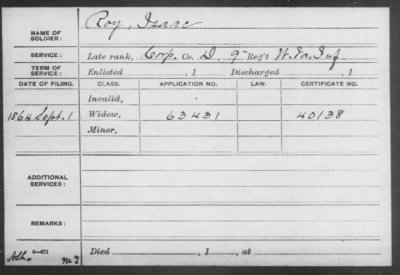 NAME OF SOLDIER: Roy, Isaac
SERVICE: Late rank, Corp. Co. D, 9" Reg't W. Va. Inf
TERM OF SERVICE: Enlisted , 1 Discharged , 1
DATE OF FILING. CLASS. APPLICATION NO. LAW. CERTIFICATE NO.
Invalid,
1864 Sept. 1 Widow, 63431 40138
Minor,
ADDITIONAL SERVICES:
REMARKS:
Died , 1 , at
6—671